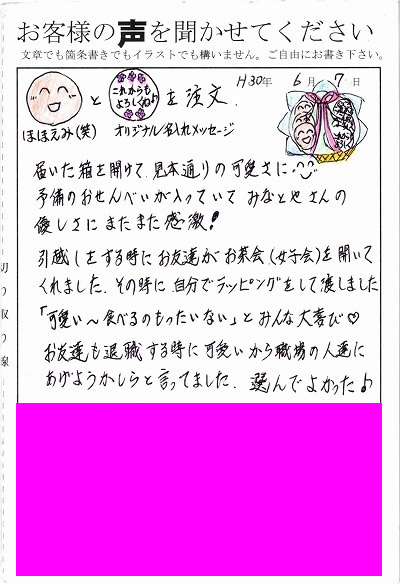 お客様の声を聞かせてください
文章でも箇条書きでもイラストでも構いません。ご自由にお書き下さい。
H30年 6月 7日
と これからもよろしくね♪ を注文.
ほほえみ(笑) オリジナル名入れメッセージ
届いた箱を開けて 見本通りの可愛さに
予備のおせんべいが入っていて みなとやさんの
優しさに またまた感激!
引越しをする時にお友達が お茶会(女子会)を開いて
くれました. その時に 自分でラッピングをして渡しました
「可愛い〜食べるのもったいない」と みんな大喜び♡
お友達も退職する時に可愛いから職場の人達に
あげようかしらと言ってました. 選んでよかった♪
切り取り線